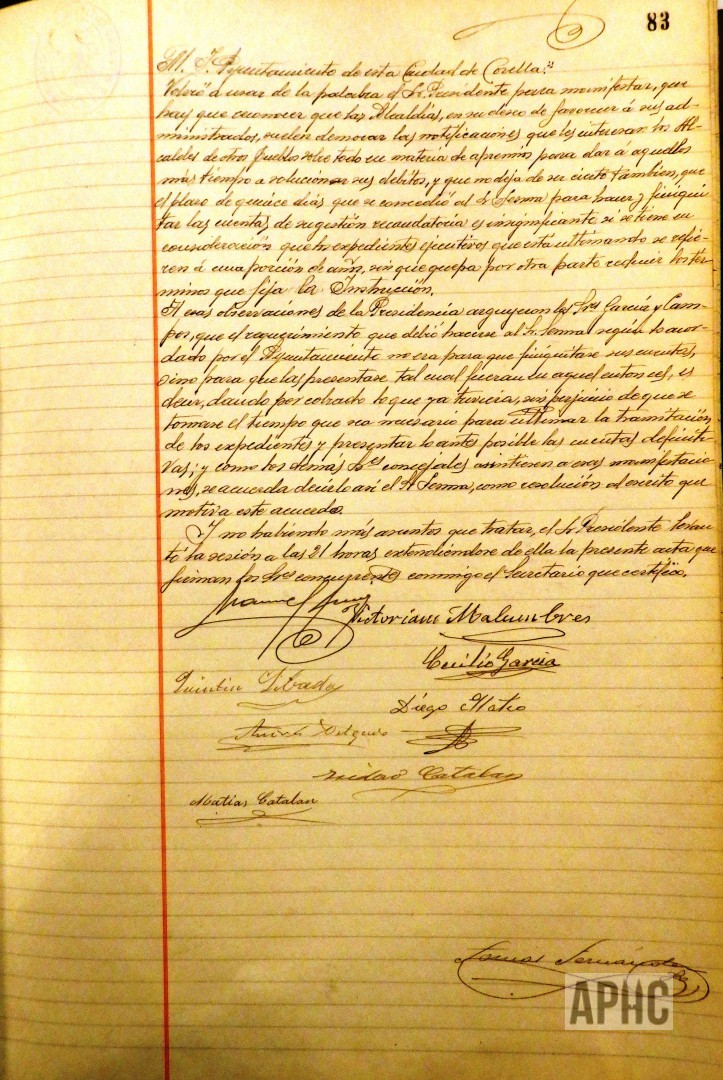 83
M. I. Ayuntamiento de esta Ciudad de Corella."
Volvió a usar de la palabra el Sr. Presidente para manifestar, que
hay que reconocer que las Alcaldías, en su deseo de favorecer á sus ad-
ministrados, suelen demorar las notificaciones que les interesan los Al-
caldes de otros Pueblos sobre todo en materia de apremios para dar á aquellos
más tiempo a solucionar sus débitos, y que no deja de ser cierto tambien, que
el plazo de quince días que se concedió al Sr. Serma para hacer y finiqui-
tar las cuentas de su gestión recaudatoria es insignificante si se tiene en
consideración que los expedientes ejecutivos que está ultimando se refie-
ren á una porción de años, sin que quepa por otra parte reducir los tér-
minos que fija la Instrucción.
A esas observaciones de la Presidencia arguyeron los Sres García y Cam-
pos, que el requerimiento que debió hacerse al Sr. Serma según lo acor-
dado por el Ayuntamiento no era para que finiquitase sus cuentas,
sino para que las presentase tal cual fueran en aquel entonces, es
decir, dando por cobrado lo que ya tuviera, sin perjuicio de que se
tomase el tiempo que sea necesario para ultimar la tramitación
de los expedientes y presentar lo antes posible las cuentas definiti-
vas; y como los demás Sres concejales asintieron a esas manifestacio-
nes, se acuerda decirlo así al Sr. Serma, como resolución al escrito que
motiva este acuerdo.
Y no habiendo más asuntos que tratar, el Sr. Presidente levan-
tó la sesión a las 21 horas extendiéndose de ella la presente acta que
firman los Sres concurrentes conmigo el Secretario que certifico.
Victoriano Malumbres
Cecilio García
Quintin
Diego Mateo
Catalan
Matias Catalan
Tomas Fernández
APHC